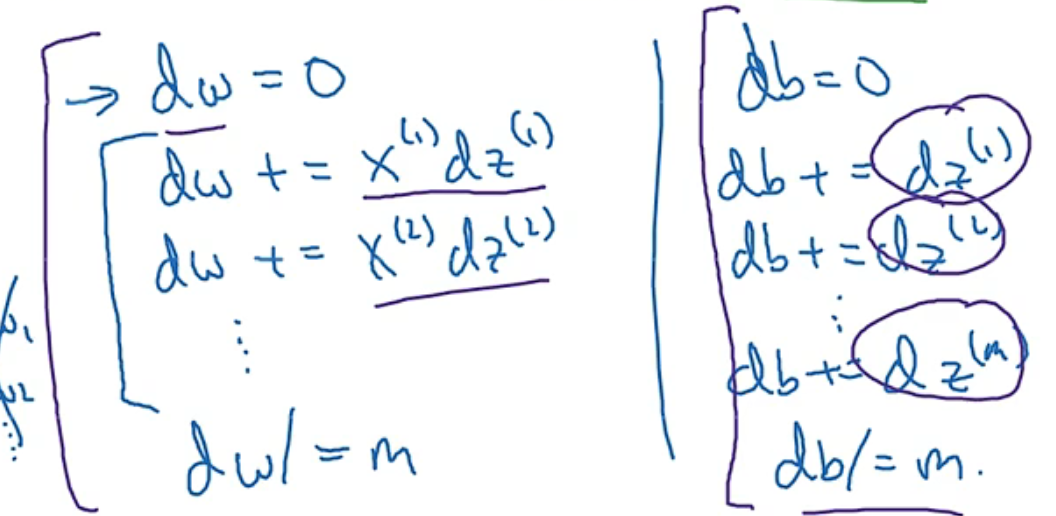 → dw = 0
dw += x⁽¹⁾dz⁽¹⁾
dw += x⁽²⁾dz⁽²⁾
⋮
dw/=m
db=0
db+=dz⁽¹⁾
db+=dz⁽²⁾
⋮
db+=dz⁽ᵐ⁾
db/=m.